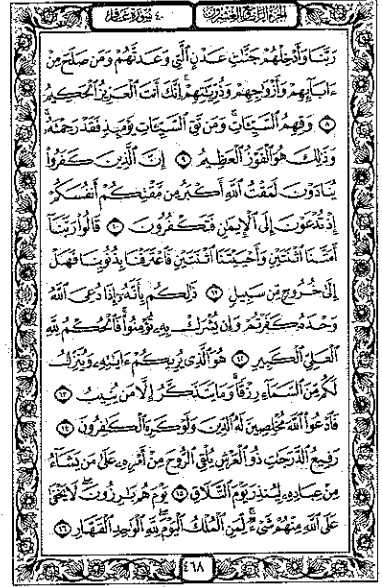 الجزء الرابع والعشرون
٤٠ سورة غافر
رَبَّنَا وَأَدْخِلْهُمْ جَنَّٰتِ عَدْنٍ ٱلَّتِى وَعَدتَّهُمْ وَمَن صَلَحَ مِنْ
ءَابَآئِهِمْ وَأَزْوَٰجِهِمْ وَذُرِّيَّٰتِهِمْ إِنَّكَ أَنتَ ٱلْعَزِيزُ ٱلْحَكِيمُ
٨ وَقِهِمُ ٱلسَّيِّـَٔاتِ وَمَن تَقِ ٱلسَّيِّـَٔاتِ يَوْمَئِذٍ فَقَدْ رَحِمْتَهُۥ
وَذَٰلِكَ هُوَ ٱلْفَوْزُ ٱلْعَظِيمُ ٩ إِنَّ ٱلَّذِينَ كَفَرُوا۟
يُنَادَوْنَ لَمَقْتُ ٱللَّهِ أَكْبَرُ مِن مَّقْتِكُمْ أَنفُسَكُمْ
إِذْ تُدْعَوْنَ إِلَى ٱلْإِيمَٰنِ فَتَكْفُرُونَ ١٠ قَالُوا۟ رَبَّنَآ
أَمَتَّنَا ٱثْنَتَيْنِ وَأَحْيَيْتَنَا ٱثْنَتَيْنِ فَٱعْتَرَفْنَا بِذُنُوبِنَا فَهَلْ
إِلَىٰ خُرُوجٍ مِّن سَبِيلٍ ١١ ذَٰلِكُم بِأَنَّهُۥٓ إِذَا دُعِىَ ٱللَّهُ
وَحْدَهُۥ كَفَرْتُمْ وَإِن يُشْرَكْ بِهِۦ تُؤْمِنُوا۟ فَٱلْحُكْمُ لِلَّهِ
ٱلْعَلِىِّ ٱلْكَبِيرِ ١٢ هُوَ ٱلَّذِى يُرِيكُمْ ءَايَٰتِهِۦ وَيُنَزِّلُ
لَكُم مِّنَ ٱلسَّمَآءِ رِزْقًا وَمَا يَتَذَكَّرُ إِلَّا مَن يُنِيبُ ١٣
فَٱدْعُوا۟ ٱللَّهَ مُخْلِصِينَ لَهُ ٱلدِّينَ وَلَوْ كَرِهَ ٱلْكَٰفِرُونَ ١٤
رَفِيعُ ٱلدَّرَجَٰتِ ذُو ٱلْعَرْشِ يُلْقِى ٱلرُّوحَ مِنْ أَمْرِهِۦ عَلَىٰ مَن يَشَآءُ
مِنْ عِبَادِهِۦ لِيُنذِرَ يَوْمَ ٱلتَّلَاقِ ١٥ يَوْمَ هُم بَٰرِزُونَ لَا يَخْفَىٰ
عَلَى ٱللَّهِ مِنْهُمْ شَىْءٌ لِّمَنِ ٱلْمُلْكُ ٱلْيَوْمَ لِلَّهِ ٱلْوَٰحِدِ ٱلْقَهَّارِ ١٦
٤٦٨